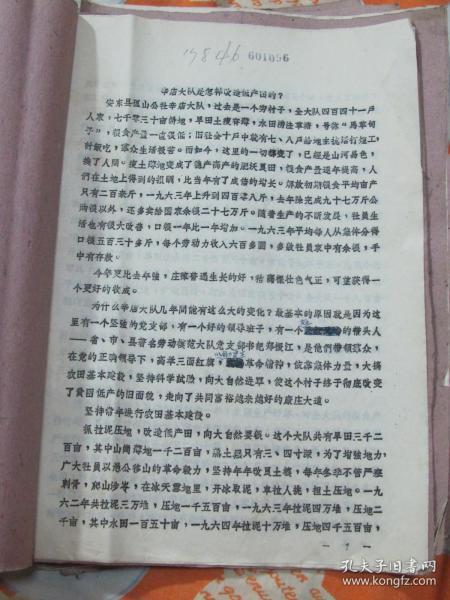 601096
辛店大队是怎样改造低产田的？
安东县孤山公社辛店大队，过去是一个穷村子，全大队四百四十一户
人家，七千零三十亩耕地，旱田土瘦薄薄，水田涝洼草清，号称“马草甸
子”，粮食产量一直很低；旧社会十户中就有七、八户给地主扛活打短工，
针毗吃，群众生活极苦。而如今，这里的一切都变了，已经是山河易色，
换了人间。瘦土薄地变成了稳产高产的肥沃良田，粮食产量逐年提高，人
们在土地上得到的报酬，比当年有了成倍的增长。解放初期粮食平均亩产
只有二百来斤，一九六三年上升到四百零八斤，去年除完成九十七万斤公
购粮以外，还多卖给国家余粮二十七万斤。随着生产的不断发展，社员生
活也有很大改善，口粮一年比一年增加。一九六三年平均每人从集体分得
口粮五百三十多斤，每个劳动力收入六百多圆，多数社员家中有余粮，手
中有存款。
今年更比去年强，庄稼普遍生长的好，秸满棵壮色气正，可望获得一
个更好的收成。
为什么辛店大队几年间能有这么大的变化？最基本的原因就是因为这
里有一个坚强的党支部，有一个好的领导班子，有一个的带头人
——省、市、县著名劳动模范大队党支部书纪郑振江，是他们带领群众，
在党的正确领导下，高举三面红旗，革命精神，依靠集体力量，大搞
农田基本建设，坚持科学试验，向大自然进军，使这个村子终于彻底改变
了贫困低产的旧面貌，走向了共同富裕越来越好的康庄大道。
坚持常年进行农田基本建设。
抓拉泥压地，改造低产田，向大自然要粮。这个大队共有旱田三千二
百亩，其中山岗薄地一千二百亩，薄土层只有三、四寸深，为了增强地力，
广大社员以愚公移山的革命毅力，坚持年年改良土壤，每年冬季不管严寒
刺骨，爬山涉岑，在冰天雪地里，开冰取泥，车拉人挑，担土压地。一九
六二年共拉泥三万堆，压地一千五百亩，一九六三年拉泥四万堆，压地二
千亩，其中水田一百五十亩，一九六四年拉泥十万堆，压地四千五百亩，
— 1 —
孔夫子旧书网
www.kongfz.com